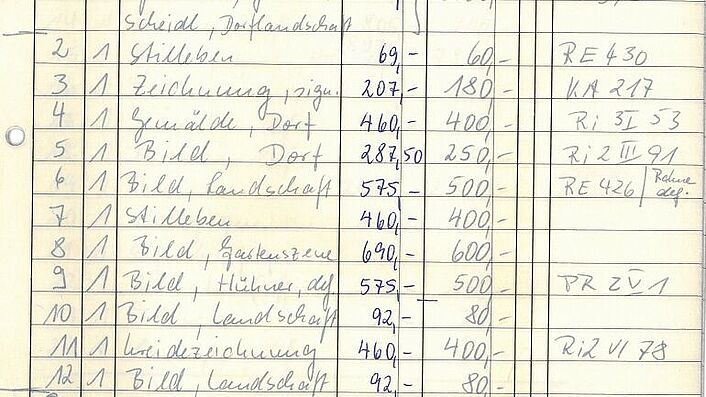 Scheidl, Dorflandschaft
2 1 Stilleben 69,- 60,- RE 430
3 1 Zeichnung, sign. 207,- 180,- KA 217
4 1 Gemälde, Dorf 460,- 400,- Ri 3 I 53
5 1 Bild, Dorf 287,50 250,- Ri 2 III 91
6 1 Bild, Landschaft 575,- 500,- RE 426 | Rahme def.
7 1 Stilleben 460,- 400,-
8 1 Bild, Gartenszene 690,- 600,-
9 1 Bild, Hühner, def. 575,- 500,- PR 2 V 1
10 1 Bild, Landschaft 92,- 80,-
11 1 Kreidezeichnung 460,- 400,- Ri 2 VI 78
12 1 Bild, Landschaft 92,- 80,-